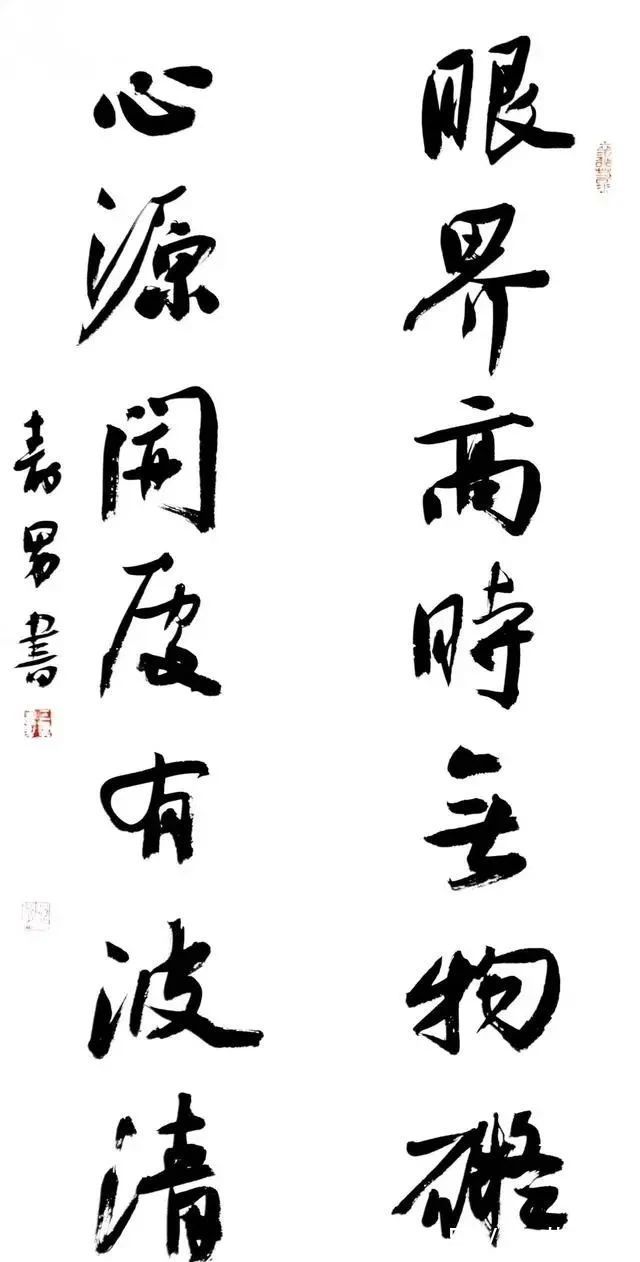 眼界高時無物礙
心源開處有波清
壽男書